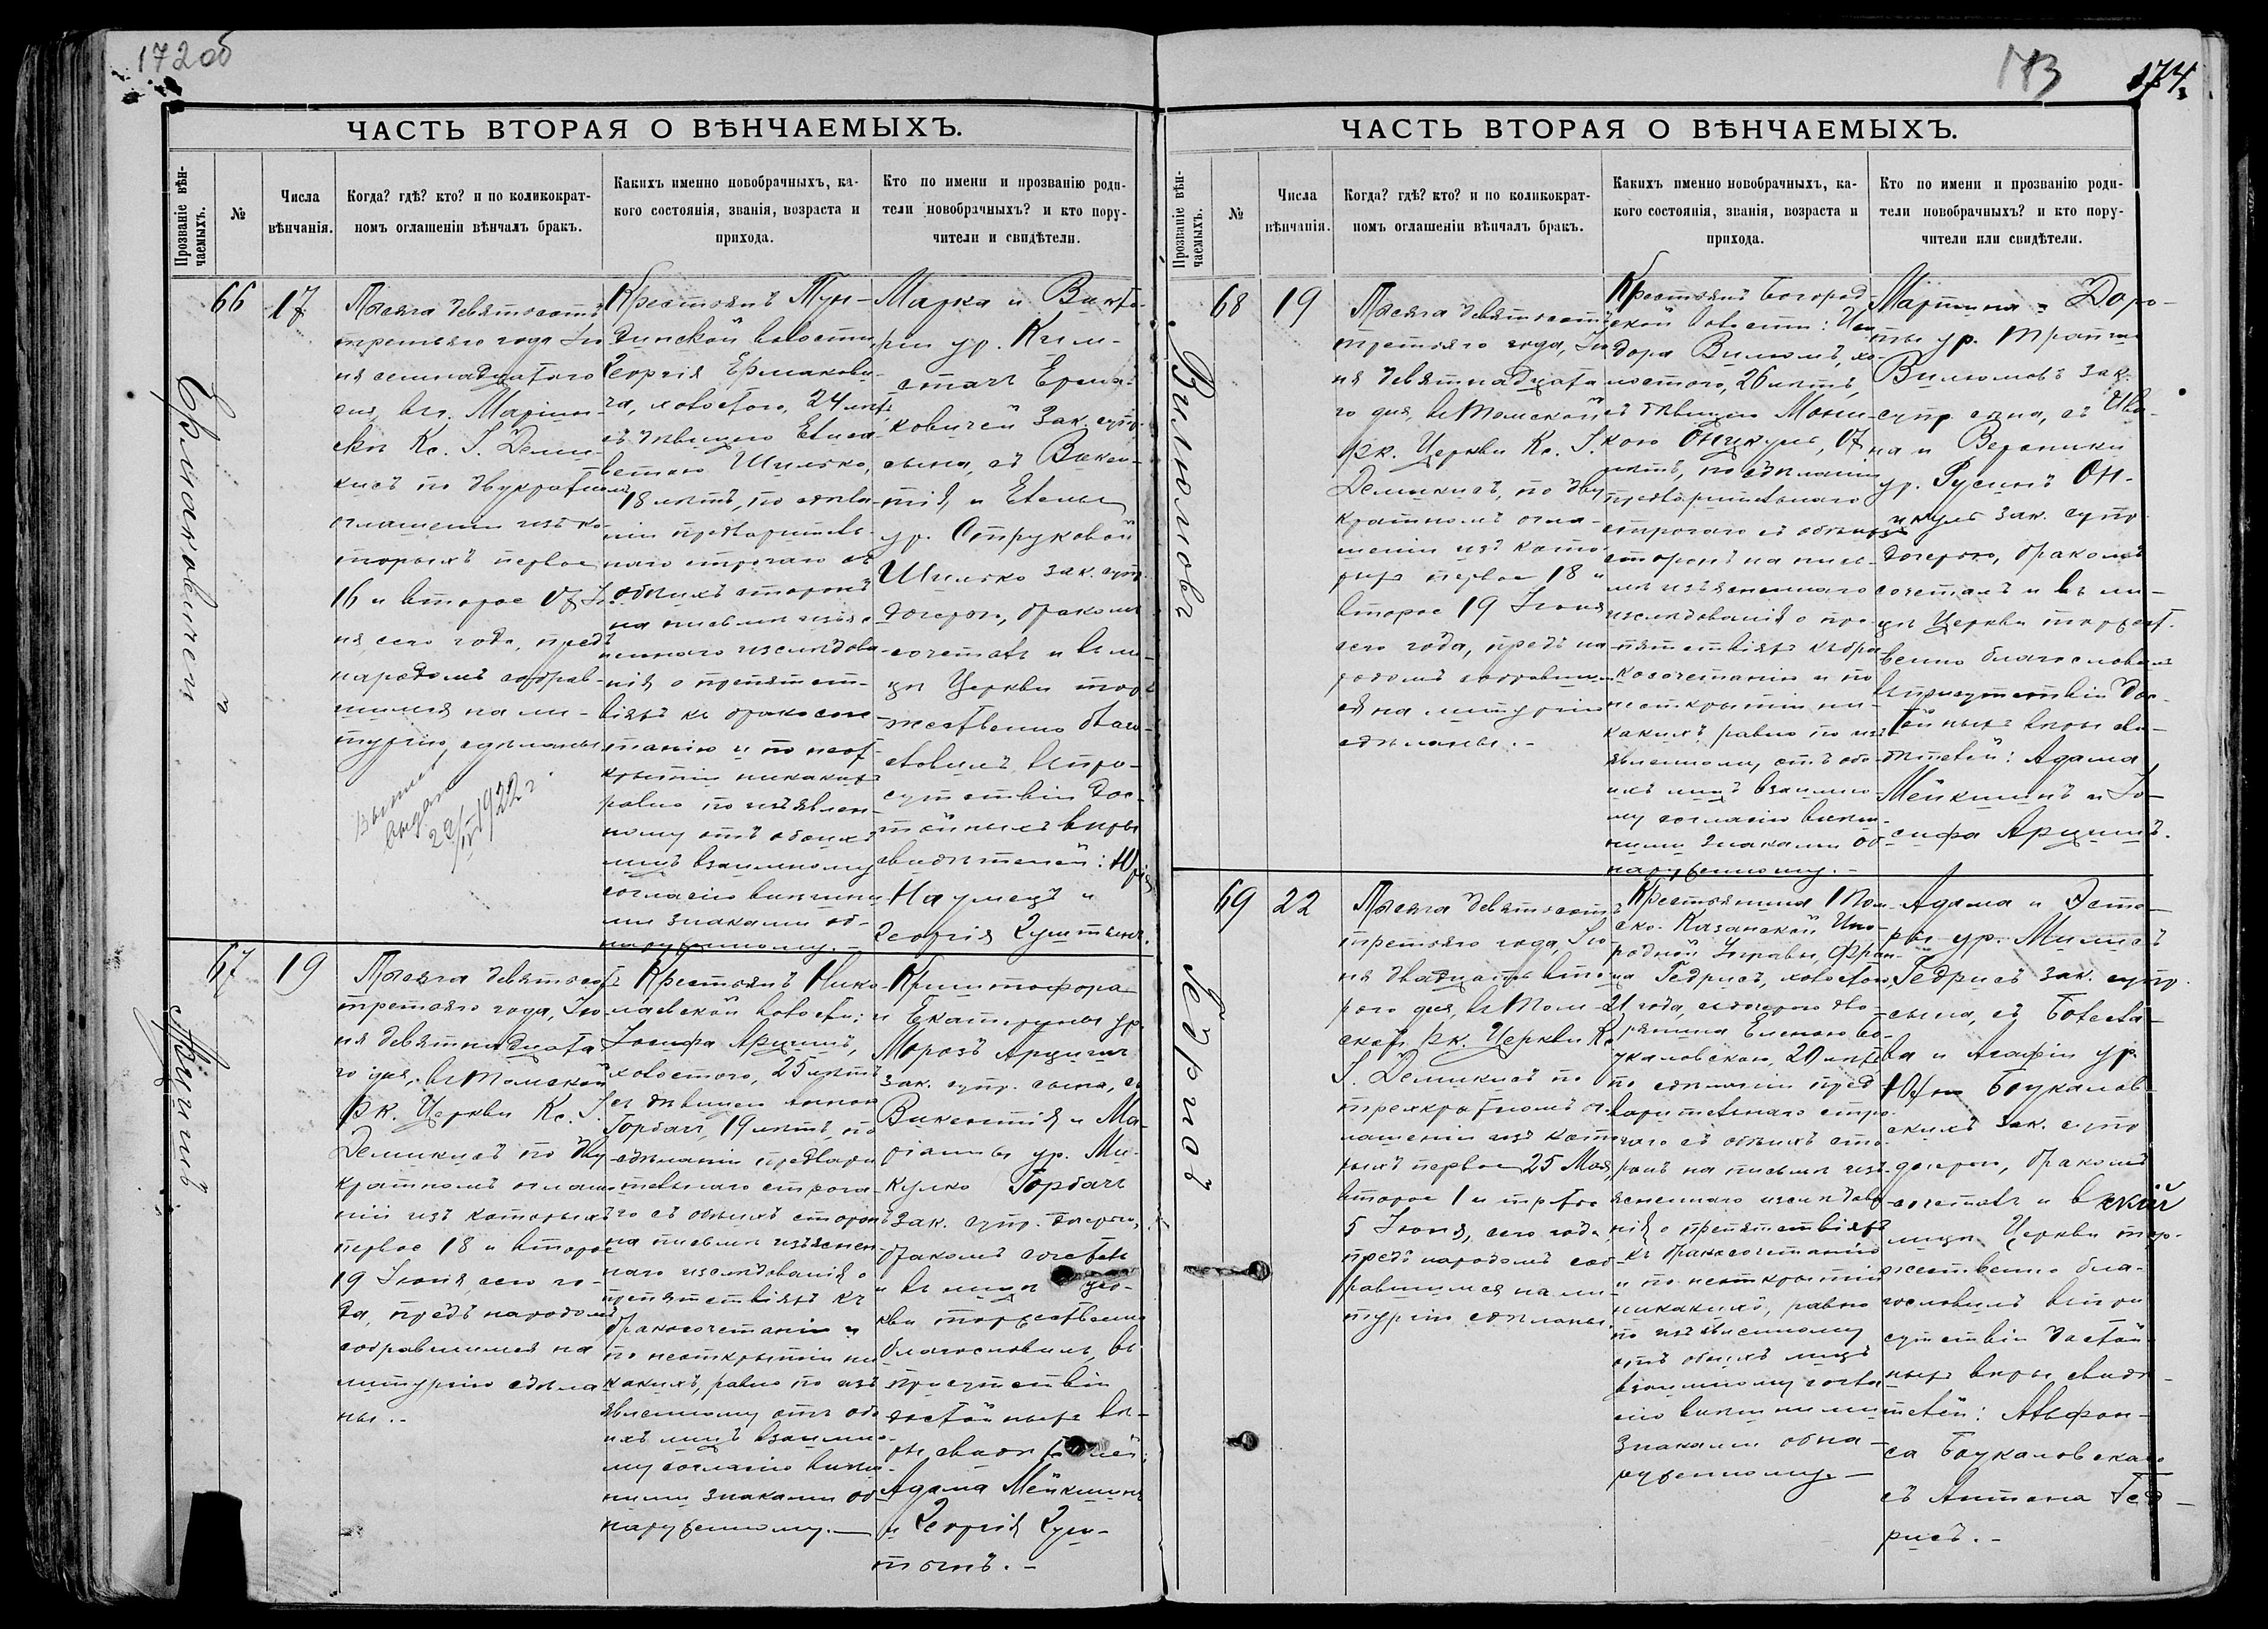 172об
ЧАСТЬ ВТОРАЯ О ВѢНЧАЕМЫХЪ.
Прозваніе вѣн-
чаемыхъ.
№
Числа
вѣнчанія.
Когда? гдѣ? кто? и по коликократ-
номъ оглашеніи вѣнчалъ бракъ.
Какихъ именно новобрачныхъ, ка-
кого состоянія, званія, возраста и
прихода.
Кто по имени и прозванію роди-
тели новобрачныхъ? и кто пору-
чители и свидѣтели.
Ермаковичеи
66
17
Тысяча девятьсотъ
третьяго года Ію
ня семнадцатаго
дня, въ. Маріин
скѣ Кс. І. Деми
кисъ по двукратномъ
оглашеніи изъ ко
торыхъ первое
16 и второе 17 Ію
ня, сего года, предъ
народомъ собрав-
шимся на ли-
тургію, сдѣланы
выпись
выдан
1922 г
Крестьянъ Тун-
динской волости,
Георгія Ермакови-
ча, холостого, 24 лѣтъ,
съ дѣвицею Елиса-
ветою Шилько,
18 лѣтъ, по сдѣла-
ніи предваритель-
наго строгаго съ
обѣихъ сторонъ
на письмѣ изъяс
неннаго изслѣдова
нія о препятст-
віяхъ къ бракосоче
танію и по неот-
крытіи никакихъ
равно по изъявлен
ному отъ обоихъ
лицъ взаимному
согласію внѣшни
ми знаками об-
наруженному.-
Марка и Викто-
ріи ур. Ким-
стачъ Ерма-
ковичей зак. супр.
сына, съ Викен-
тія и Елены
ур. Струковой
Шилько зак. супр.
дочерью, бракомъ
сочеталъ и въ ли-
цѣ Церкви тор-
жественно благо
словилъ, въ при-
сутствіи дос-
тойныхъ вѣры
свидѣтелей: Юрія
Наумецъ и
Георгія
Арцишъ
67
19
Тысяча девятьсотъ
третьяго года, Ію
ня девятнадцата
го дня, въ Томской
Рк. Церкви Кс. І.
Демикисъ по дву
кратномъ оглаше
ніи изъ которыхъ
первое 18 и второе
19 Іюня, сего го-
да, предъ народомъ
собравшимся на
литургію сдѣла
ны.-
Крестьянъ Нико
лаевской волости:
Іосифа Арцишъ,
холостого, 25 лѣтъ
съ дѣвицею Анною
Горбачъ, 19 лѣтъ, по
сдѣланіи предвари
тельнаго строга-
го съ обѣихъ сторонъ
на письмѣ изъяснен
наго изслѣдованія о
препятствіяхъ къ
бракосочетанію и
по неоткрытіи ни
какихъ, равно по изъ
явленному отъ обо
ихъ лицъ взаимно-
му согласію внѣш
ними знаками об
наруженному.—
Криштофора
и Екатерины ур.
Морозъ Арцишъ
зак. супр. сына, съ
Викентія и Ма-
ріанны ур. Ми-
кулко Горбачъ
зак. супр. дочерью,
бракомъ сочеталъ
и въ лицѣ Цер-
кви торжественно
благословилъ, въ
присутствіи
достойныхъ вѣ-
ры свидѣтелей:
Адама Мейкшинъ
и Георгія
173
174.
ЧАСТЬ ВТОРАЯ О ВѢНЧАЕМЫХЪ.
Прозваніе вѣн-
чаемыхъ.
№
Числа
вѣнчанія.
Когда? гдѣ? кто? и по коликократ-
номъ оглашеніи вѣнчалъ бракъ.
Какихъ именно новобрачныхъ, ка-
кого состоянія, званія, возраста и
прихода.
Кто по имени и прозванію роди-
тели новобрачныхъ? и кто пору-
чители или свидѣтели.
Вилюмовъ
68
19
Тысяча девятьсотъ
третьяго года, Ію
ня девятнадцата
го дня, въ Томской
Рк. Церкви Кс. І.
Демикисъ, по дву
кратномъ огла-
шеніи изъ кото-
рыхъ первое 18 и
второе 19 Іюня
сего года, предъ на
родомъ собравшим
ся на литургію
сдѣланы.-
Крестьянъ Богород
ской волости: Иси
дора Вилюмъ, хо-
лостого, 26 лѣтъ,
съ дѣвицею Мони-
кою Онцкуль, 17
лѣтъ, по сдѣланіи
предварительнаго
строгаго съ обѣихъ
сторонъ на пись
мѣ изъясненнаго
изслѣдованія о пре
пятствіяхъ къ бра
косочетанію и по
неоткрытіи ни-
какихъ, равно по изъ
явленному отъ обо
ихъ лицъ взаимно
му согласію внѣш
ними знаками об-
наруженному.-
Мартина и Доро-
теи ур.
Вилюмовъ зак.
супр. сына, съ Ива-
на и Вероники
ур. Русинъ Он-
цкуль зак. супр.
дочерью, бракомъ
сочеталъ и въ ли-
цѣ Церкви торжест-
венно благословилъ
въ присутствіи дос-
тойныхъ вѣры сви-
дѣтелей: Адама
Мейкшинъ и Іо-
сифа Арцишъ.
Гедрисъ
69
22
Тысяча девятьсотъ
третьяго года, Ію
ня двадцать вто
рого дня, въ Том-
ской Рк. Церкви Кс
І. Демикисъ по
трехкратномъ ог
лашеніи изъ кото
рыхъ первое 25 Мая,
второе 1 и третье
5 Іюня, сего года,
предъ народомъ соб
равшимся на ли-
тургію сдѣланы.
Крестьянина Том
ско-Казанской Ино-
родной Управы, Фран
ца Гедрисъ, холостого,
21 года, съ дочерью дво-
рянина Еленою Бо-
укаловскою, 20 лѣтъ
по сдѣланіи пред
варительнаго стро
гаго съ обѣихъ сто
ронъ на письмѣ изъ
ясненнаго изслѣдова
нія о препятствіяхъ
къ бракосочетанію
и по неоткрытіи
никакихъ, равно
по изъявленному
отъ обоихъ лицъ
взаимному согла
сію внѣшними
знаками обна-
руженному.—
Адама и Эсте-
ры ур.
Гедрисъ зак. супр.
сына, съ Болесла-
ва и Агафіи ур.
Боукалов-
скихъ зак. супр
дочерью, бракомъ
сочеталъ и въ
лицѣ Церкви тор-
жественно бла-
гословилъ въ при
сутствіи достой-
ныхъ вѣры свидѣ-
телей: Альфон-
са Боукаловскаго
съ Антона Гед-
рисъ.-